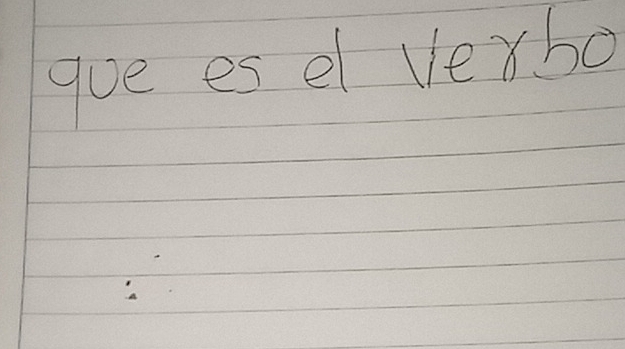 que es el verbo